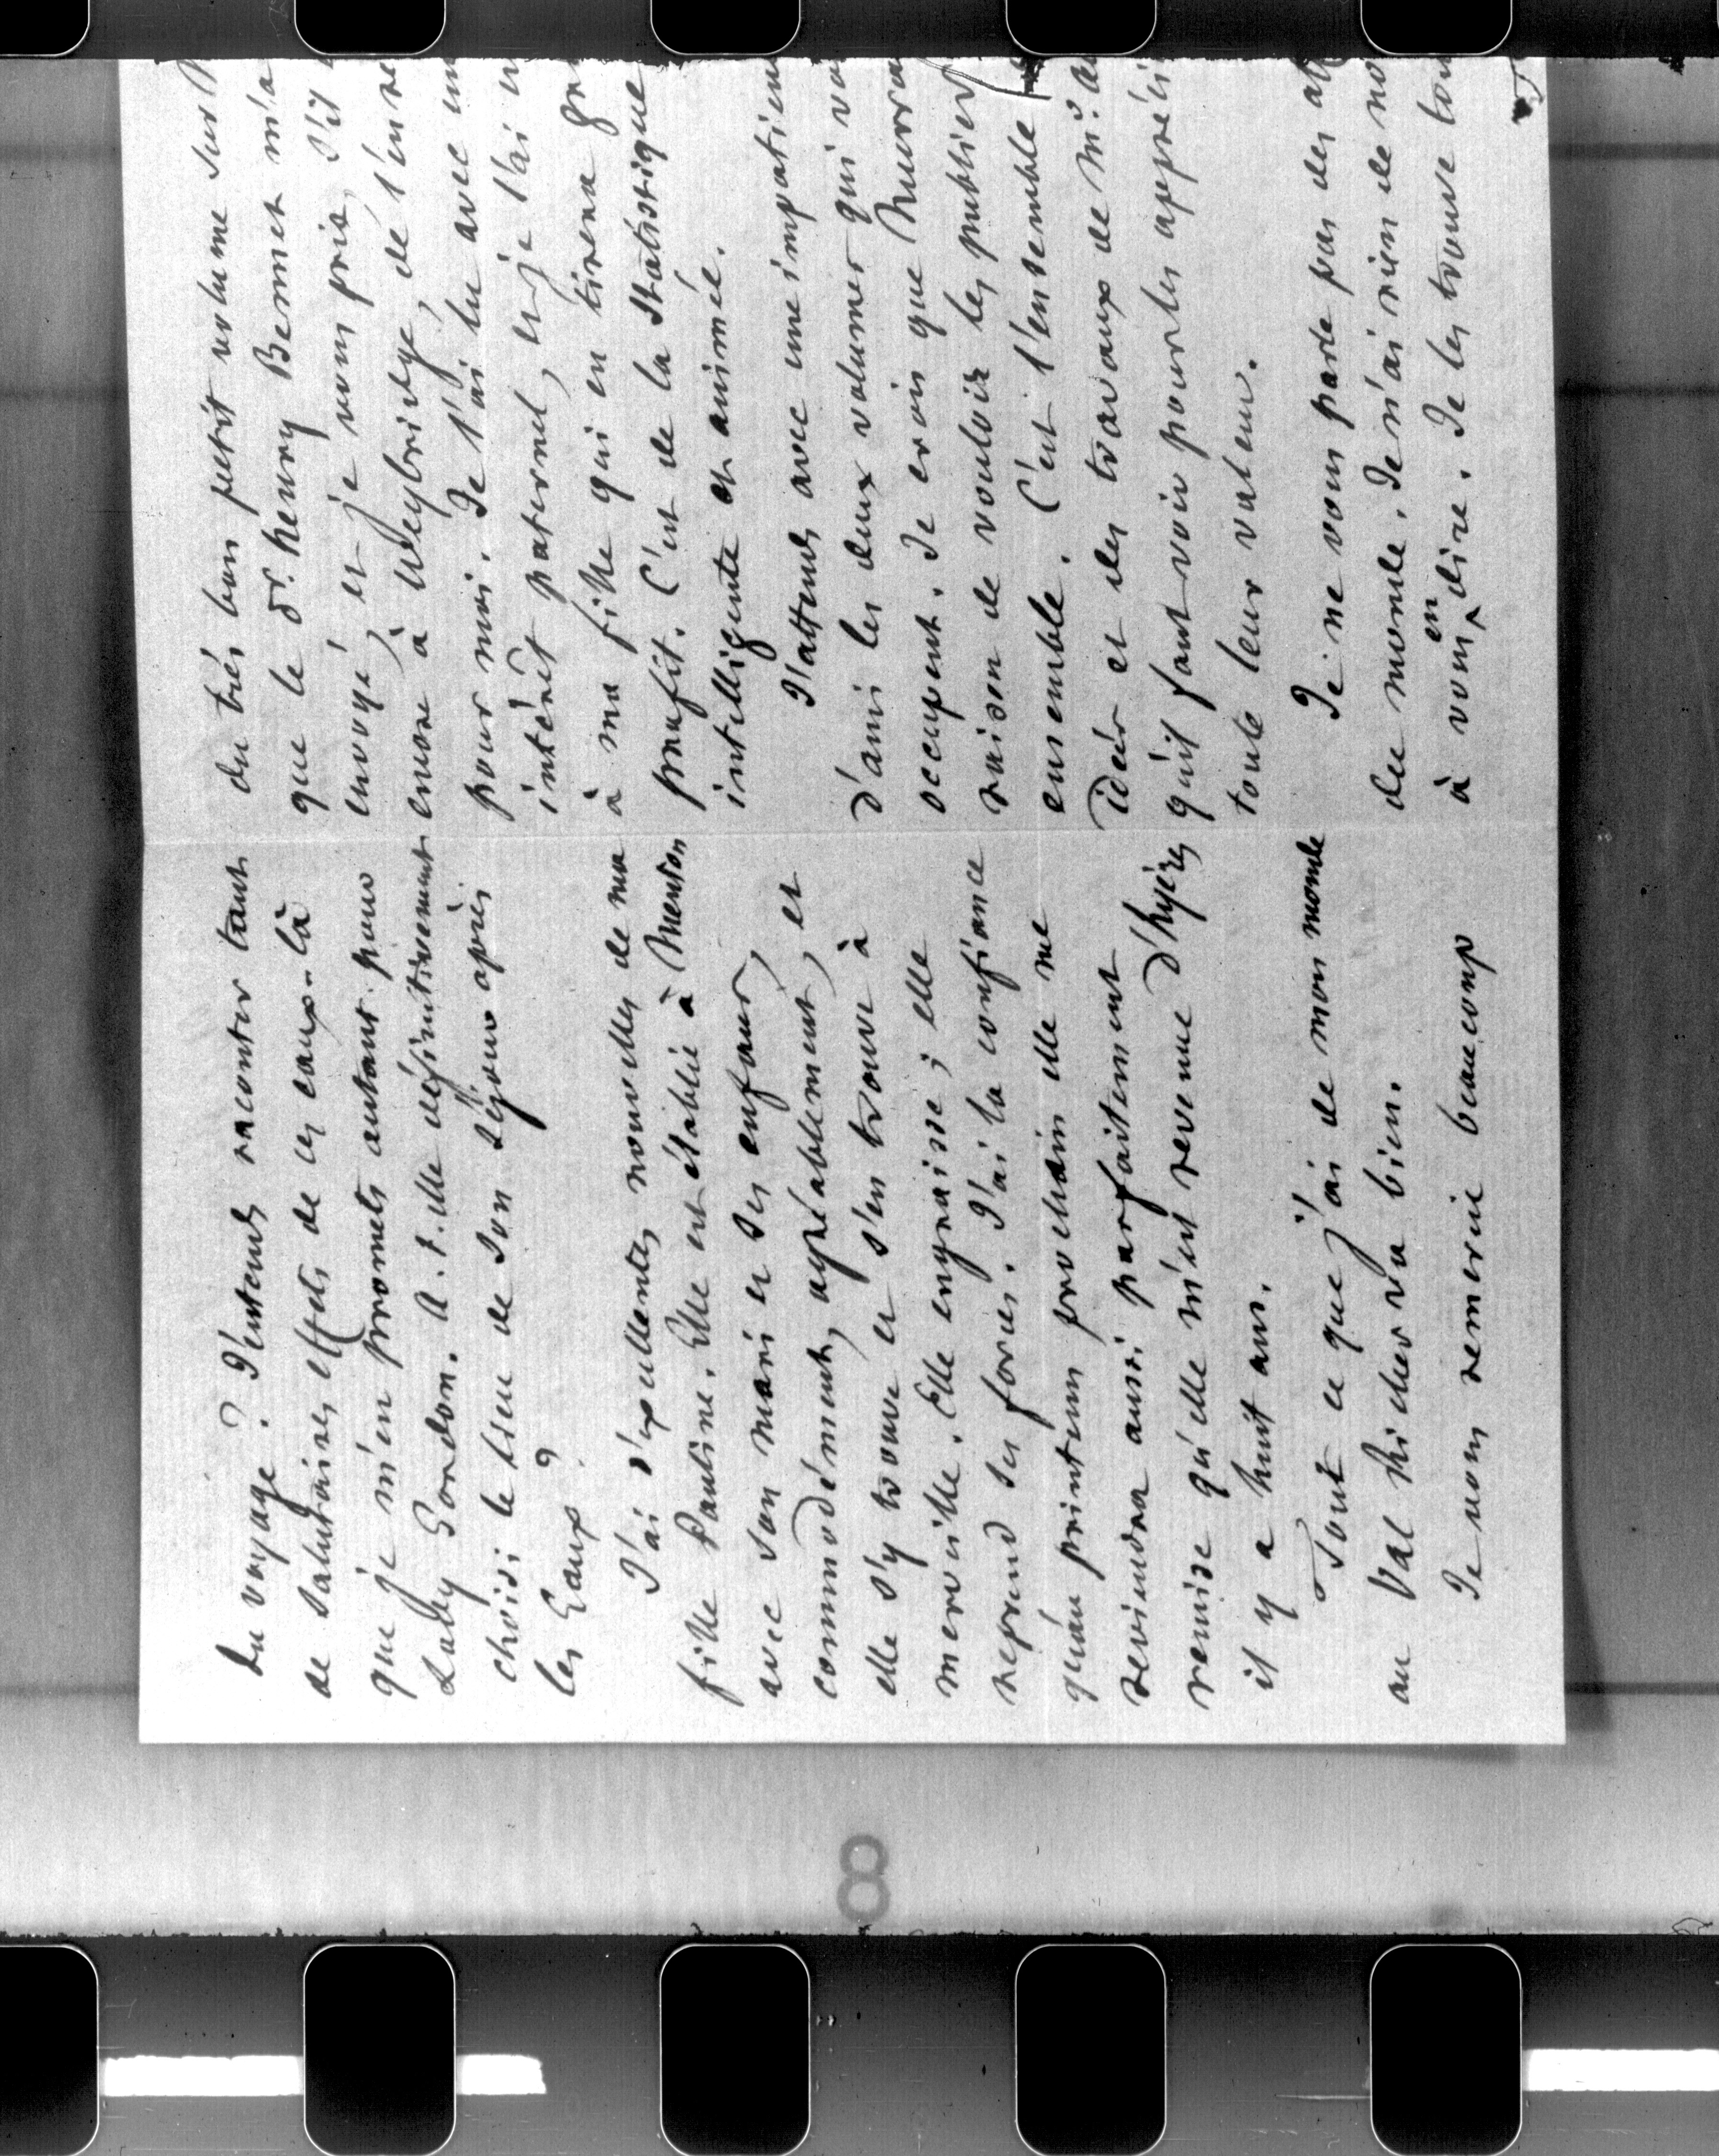 du voyage ? J'entends raconter tant
de salutaires effets de ces eaux-là
que je m'en promets autant pour
Lady Gordon. A-t-elle définitivement
choisi le lieu de son séjour après
les Eaux ?
J'ai d'excellentes nouvelles de ma
fille Pauline. Elle est établie à Menton
avec son mari et ses enfans,
commodément, agréablement, et
elle s'y trouve et s'en trouve à
merveille. Elle engraisse ; elle
reprend ses forces. J'ai la confiance
qu'au printems prochain elle me
reviendra aussi parfaitement
remise qu'elle m'est revenue d'hyères
il y a huit ans.
Tout ce que j'ai de mon monde
au Val Richer va bien.
Je vous remercie beaucoup
du très bon petit volume sur
que le Dr. henry Bennet m'a
envoyé, et je vous prie, s'il
encore à Weybridge, de l'en re
pour moi. Je l'ai lu avec un
intérêt paternel, et je l'ai
à ma fille qui en tirera
profit. C'est de la statistique
intelligente et animée.
J'attends avec une impatien
d'ami les deux volumes qui
occupent. Je crois que Murra
raison de vouloir les publier
ensemble. C'est l'ensemble
idées et des travaux de Mr. Au
qu'il faut voir pour les appréci
toute leur valeur.
Je ne vous parle pas des aff
du monde. Je n'ai rien de no
à vous en dire. Je les trouve
8